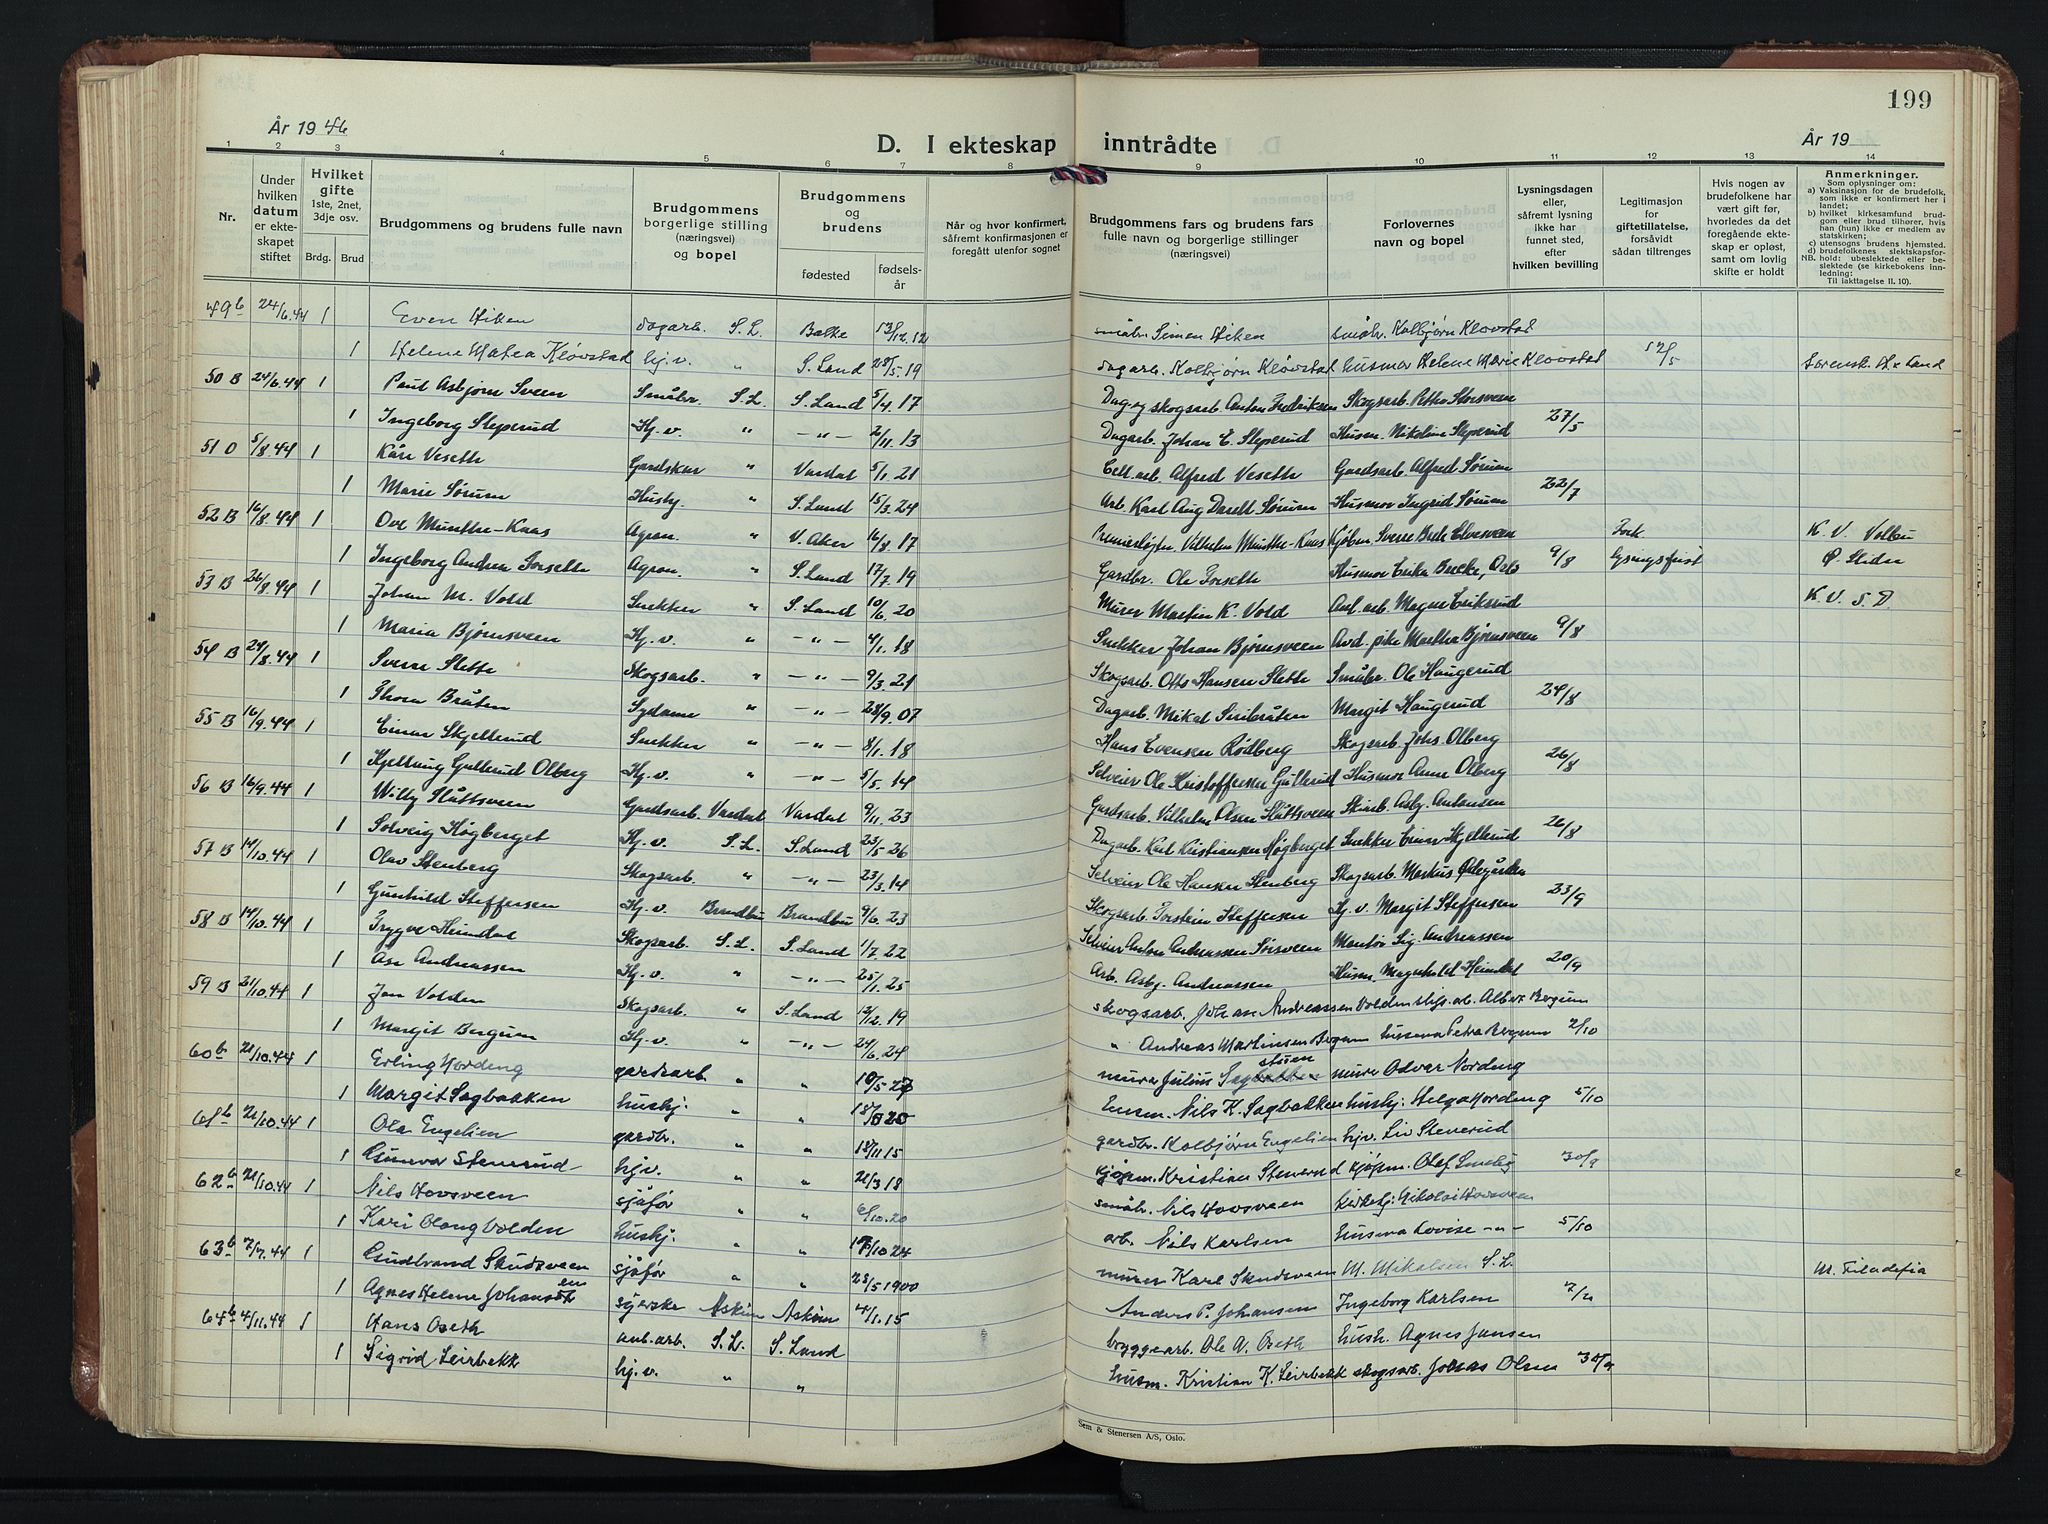 199
År 1946
D. I ekteskap inntrådte
År 19
1 2 3 4 5 6 7 8 9 10 11 12 13 14
Nr.
Under hvilken datum er ekteskapet stiftet
Hvilket gifte 1ste, 2net, 3dje osv.
Brdg. Brud
Brudgommens og brudens fulle navn
Brudgommens borgerlige stilling (næringsvei) og bopel
Brudgommens og brudens
fødested
fødselsår
Når og hvor konfirmert, såfremt konfirmasjonen er foregått utenfor sognet
Brudgommens fars og brudens fars fulle navn og borgerlige stillinger (næringsvei)
Forlovernes navn og bopel
Lysningsdagen eller, såfremt lysning ikke har funnet sted, efter hvilken bevilling
Legitimasjon for giftetillatelse, forsåvidt sådan tiltrenges
Hvis nogen av brudefolkene har vært gift før, hvorledes da det foregående ekteskap er opløst, samt om lovlig skifte er holdt
Anmerkninger.
Som oplysninger om:
a) Vaksinasjon for de brudefolk, som ikke er konfirmert her i landet;
b) hvilket kirkesamfund brudgom eller brud tilhører, hvis han (hun) ikke er medlem av statskirken;
c) utensogns brudens hjemsted.
d) brudefolkenes slektskapsforhold: ubeslektede eller beslektede (se kirkebokens innledning;
NB. Til iakttagelse II. 10).
49b 24/6.44 1 Even Hiken dagarb. S.L. Balke 13/12.12 småbr. Simen Hiken småbr. Kolbjørn Kløvstad
1 Helene Matea Kløvstad hj.v. " S. Land 28/5.19 dagarb. Kolbjørn Kløvstad husmor Helene Marie Kløvstad 12/5 Sorensk. H. & Land
50 B 24/6.44 1 Paul Asbjørn Sveen Småbr. S.L. S. Land 5/4.17 Dag og skogsarb. Anton Fredriksen Skogsarb. Petter Storsveen
1 Ingeborg Sleperud Hj.v. " - " - 2/11.13 Dagarb. Johan E. Sleperud Husm. Nikoline Sleperud 27/5
51 O 5/8.44 1 Kåre Veseth Gardskar " Vardal 5/1.21 Cell.arb. Alfred Veseth Gardsarb. Alfred Sørum
1 Marie Sørum Hushj. " S. Land 15/3.24 Arb. Karl Aug Dareld Sørum Husmor Ingrid Sørum 22/7
52 B 16/8.44 1 Ove Munthe-Kaas Agron. " V. Aker 16/8.17 Premierløytn. Vilhelm Munthe-Kaas Kjøbm. Sverre Brede Elvesveen K. V. Volbu
1 Ingeborg Andrea Forseth Agron. " S. Land 17/7.19 Gardbr. Ole Forseth Husmor Erika Brecke, Oslo 9/8 lysningsfrist Ø. Slidre
53 B 26/8.44 1 Johan M. Vold Snekker " S. Land 10/6.20 Murer Martin K. Vold Anl.arb. Magne Eriksrud K. V. S. D
1 Maria Bjørnsveen Hj.v. " - " - 4/1.18 Snekker Johan Bjørnsveen Avd. pike Martha Bjørnsveen 9/8
54 B 24/8.44 1 Sverre Slette Skogsarb. " - " - 9/3.21 Skogsarb. Otto Hansen Slette Småbr. Ole Haugerud
1 Thora Bråten Sydame " - " - 28/9.07 Dagarb. Mikal Siribråten Margit Haugerud 24/8
55 B 16/9.44 1 Einar Skjellerud Snekker " - " - 8/1.18 Hans Evensen Rødberg Skogsarb. Johs. Olberg
1 Kjellaug Gullerud Olberg Hj.v. " - " - 5/5.14 Selveier Ole Kristoffersen Gullerud Husmor Anne Olberg 26/8
56 B 16/9.44 1 Willy Slåttsveen Gardsarb. Vardal Vardal 9/11.23 Gardsarb. Vilhelm Olsen Slåttsveen Skiarb. Asbj. Antonsen
1 Solveig Høgberget Hj.v. S.L. S. Land 23/5.26 Dagarb. Karl Kristiansen Høgberget Snekker Einar Skjellerud 26/8
57 B 14/10.44 1 Olav Stenberg Skogsarb. " - " - 23/3.14 Selveier Ole Hansen Stenberg Skogsarb. Markus Ødegården
1 Gunhild Steffensen Hj.v. Brandbu Brandbu 9/6.23 Skogsarb. Torstein Steffensen Hj.v. Margit Steffensen 23/9
58 B 14/10.44 1 Trygve Heimdal Skogsarb. S.L. S. Land 1/7.22 Selveier Anton Andreassen Sørsveen Montør Sig. Andreassen
1 Åse Andreassen Hj.v. " - " - 25/1.25 Arb. Asbj. Andreassen Husm. Magnhild Heimdal 20/9
59 B 21/10.44 1 Jon Volden Skogsarb. " S. Land 12/12.19 skogsarb. Johan Andreassen Volden slip. arb. Albert Bergum
1 Margit Bergum Hj.v. " - " - 24/6.24 " Andreas Martinsen Bergum husmor Petra Bergum 7/10
60b 21/10.44 1 Erling Nordeng gardsarb " " 10/5-27 murer Julius Sagbakken stuen murer Odvar Nordeng
1 Margit Sagbakken hushj. " " 18/8 20 husm. Nils K. Sagbakken hushj. Helga Nordeng 5/10
61b 21/10.44 1 Ola Engelien gardbr. " " 18/11 15 gardbr. Kolbjørn Engelien hjv. Liv Stenerud
1 Gunvor Stenerud hj.v. " " 21/3 18 kjøpm. Kristian Stenerud kjøpm. Olef Smeby 30/9
62b 21/10.44 1 Nils Hovsveen sjåfør " " 6/10.20 småbr. Nils Hovsveen kirketj. Nikolai Hovsveen
1 Kari Olaug Volden hushj. " " 17/10 24 arb. Nils Karlsen husmor Lovise - " - 5/10
63b 7/7.44 1 Gudbrand Skudsveen sjåfør " " 23/5 1900 murer Karl Skudsveen M. Mikalsen S.L. M. Filadelfia
1 Agnes Helene Johansen syerske Askim Askim 4/1.15 Anders P. Johansen Ingeborg Karlsen
64b 4/11.44 1 Hans Oseth anl.arb. S.L. S. Land byggearb. Ole A. Oseth hush. Agnes Jansen
1 Sigrid Leirbekk hj.v. " " husm. Kristian K. Leirbekk skogsarb. Johas Olsen
Sem & Stenersen A/S, Oslo.